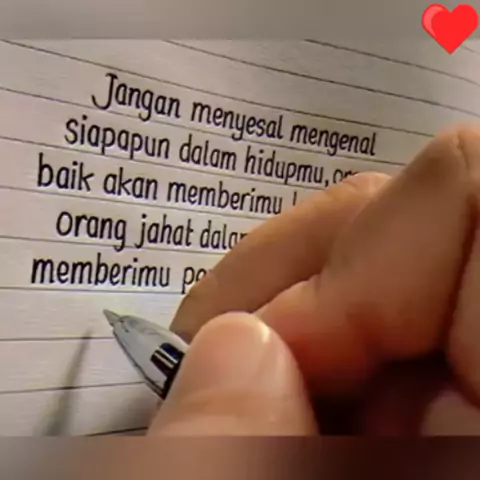 Jangan menyesal mengenal
siapapun dalam hidupmu,
baik akan memberimu
orang jahat
memberimu